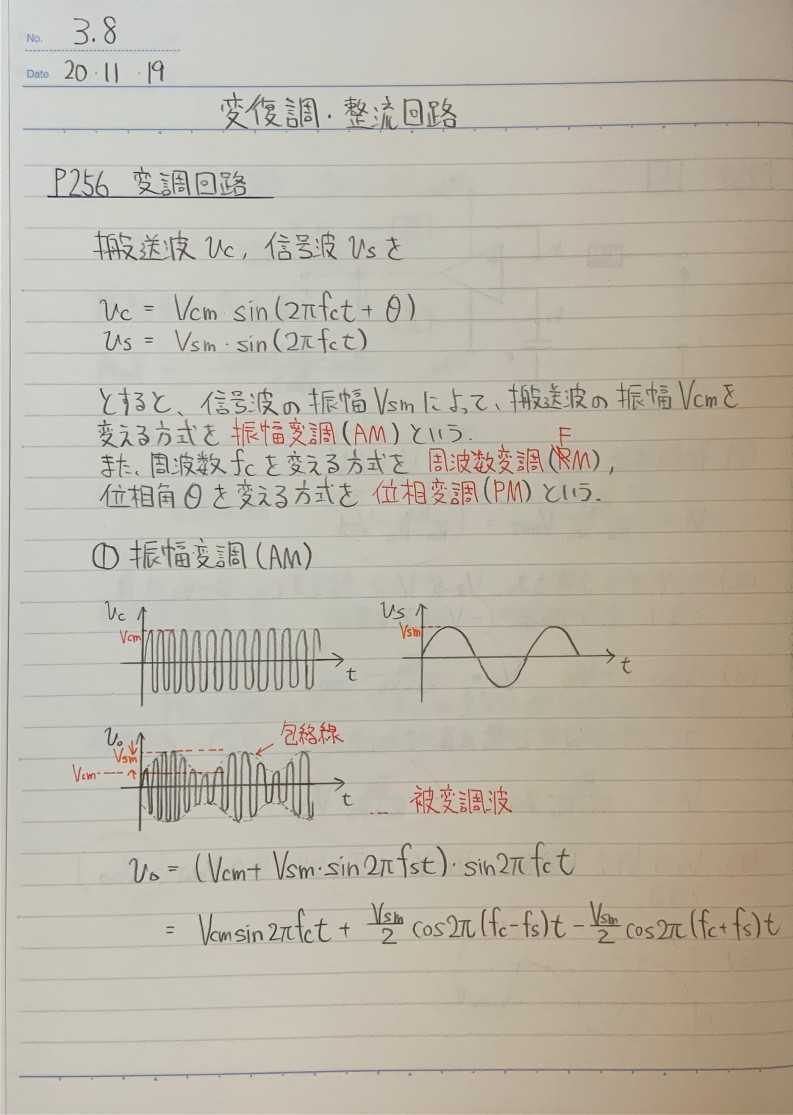 No. 3.8
Date 20・11・19
変復調・整流回路
P256 変調回路
搬送波 vc, 信号波 vs を
vc = Vcm sin(2πfct + θ)
vs = Vsm・sin(2πfct)
とすると、信号波の振幅Vsmによって、搬送波の振幅Vcmを
変える方式を振幅変調(AM)という.
また、周波数fcを変える方式を 周波数変調(FM),
位相角θを変える方式を 位相変調(PM)という.
① 振幅変調(AM)
vc
Vcm
t
vs
Vsm
t
vo
Vsm
Vcm
包絡線
t
… 被変調波
vo = (Vcm+ Vsm・sin2πfst)・sin2πfct
= Vcmsin2πfct + Vsm/2 cos2π(fc-fs)t - Vsm/2 cos2π(fc+fs)t